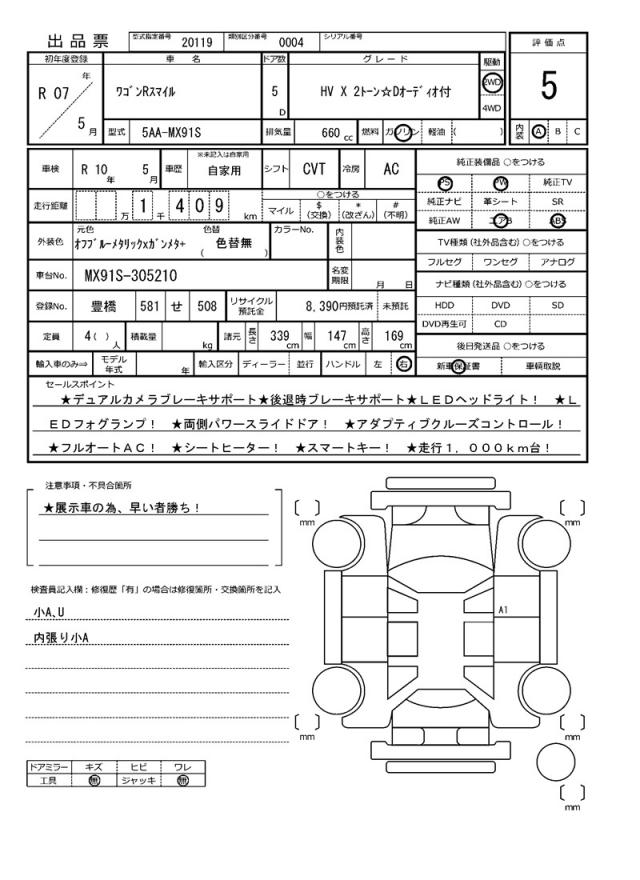 出品票 型式指定番号 20119 類別区分番号 0004 シリアル番号
評価点
5
内装 A B C
初年度登録 車名 ドア数 グレード 駆動
R 07 年 5 月
ﾜｺﾞﾝRｽﾏｲﾙ 5 D HV X 2ﾄｰﾝ☆Dｵｰﾃﾞｨｵ付 2WD 4WD
型式 5AA-MX91S 排気量 660 cc 燃料 ガソリン 軽油 ( )
車検 R 10 年 5 月 車歴 ※未記入は自家用 自家用 シフト CVT 冷房 AC
走行距離 万 1 千 4 0 9 km
○をつける
マイル $ (交換) * (改ざん) # (不明)
外装色 元色 ｵﾌﾌﾞﾙｰﾒﾀﾘｯｸxｶﾞﾝﾒﾀ+ 色替 ( 色替無 ) カラーNo. 内装色
車台No. MX91S-305210 名変期限 月 日
登録No. 豊橋 581 せ 508 リサイクル預託金 8,390円預託済 未預託
定員 4( ) 人 積載量 kg 諸元 長さ 339 cm 幅 147 cm 高さ 169 cm
輸入車のみ⇒ モデル年式 年 輸入区分 ディーラー 並行 ハンドル 左 右
純正装備品 ○をつける
PS PW 純正TV
純正ナビ 革シート SR
純正AW エアB ABS
TV種類 (社外品含む) ○をつける
フルセグ ワンセグ アナログ
ナビ種類 (社外品含む) ○をつける
HDD DVD SD
DVD再生可 CD
後日発送品 ○をつける
新車保証書 車輌取説
セールスポイント
★デュアルカメラブレーキサポート★後退時ブレーキサポート★ＬＥＤヘッドライト！　★Ｌ
ＥＤフォグランプ！　★両側パワースライドドア！　★アダプティブクルーズコントロール！
★フルオートＡＣ！　★シートヒーター！　★スマートキー！　★走行１，０００ｋｍ台！
注意事項・不具合箇所
★展示車の為、早い者勝ち！
検査員記入欄：修復歴「有」の場合は修復箇所・交換箇所を記入
小A､U
内張り小A
ドアミラー キズ ヒビ ワレ
工具 無 ジャッキ 無
[ ] mm
[ ] mm
A1
[ ] mm
[ ] mm
[ ] mm